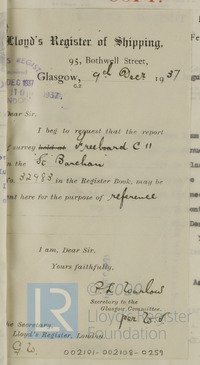 Lloyd's Register of Shipping,
95, Bothwell Street,
C.2
Glasgow, 9th Decr 1937
Dear Sir,
I beg to request that the report
survey held at Freeboard C 11
on the "St.
No. 32983 in the Register Book, may be
sent here for the purpose of reference
I am, Dear Sir,
Yours faithfully,
Secretary to the
Glasgow Committee.
per
The Secretary,
Lloyd's Register, London
G.W.
LR
Lloyd's Register
Foundation
002101-002108-0259